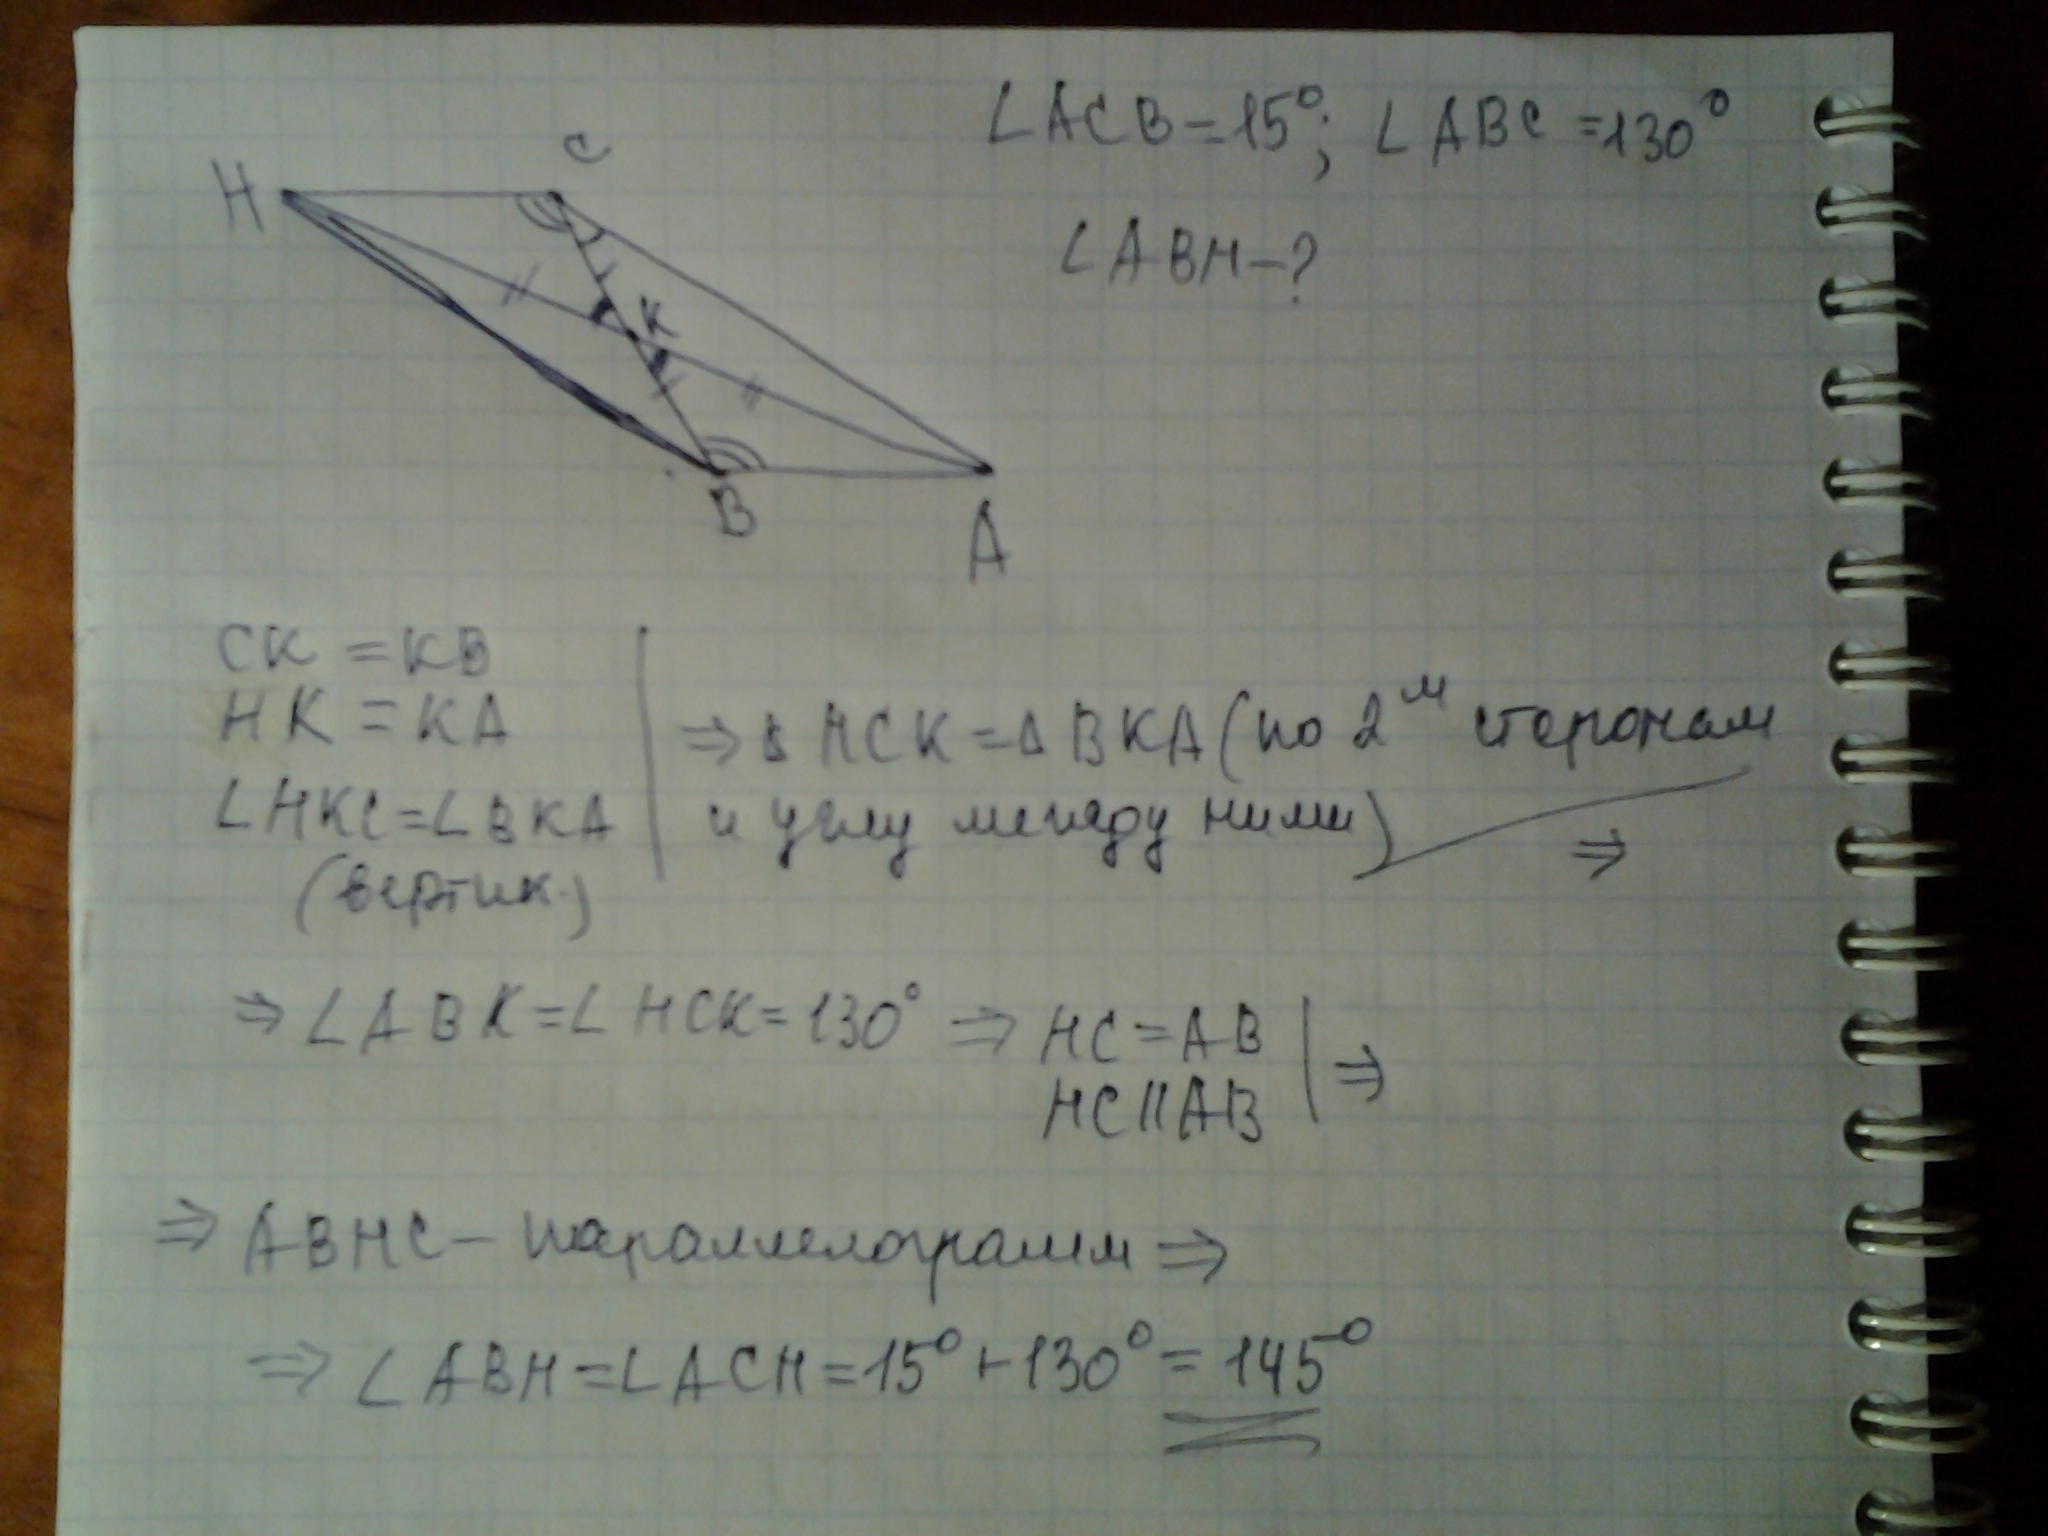 ∠ACB=15°; ∠ABC=130°
∠ABH-?
C
H
K
B
A
CK=KB
HK=KA
∠HKC=∠BKA
(вертик.)
⇒ Δ HCK=Δ BKA (по 2м сторонам
и углу между ними)
⇒
⇒ ∠ABK=∠HCK=130° ⇒ HC=AB
HC||AB
⇒
⇒ ABHC - параллелограмм ⇒
⇒ ∠ABH=∠ACH=15°+130°=145°